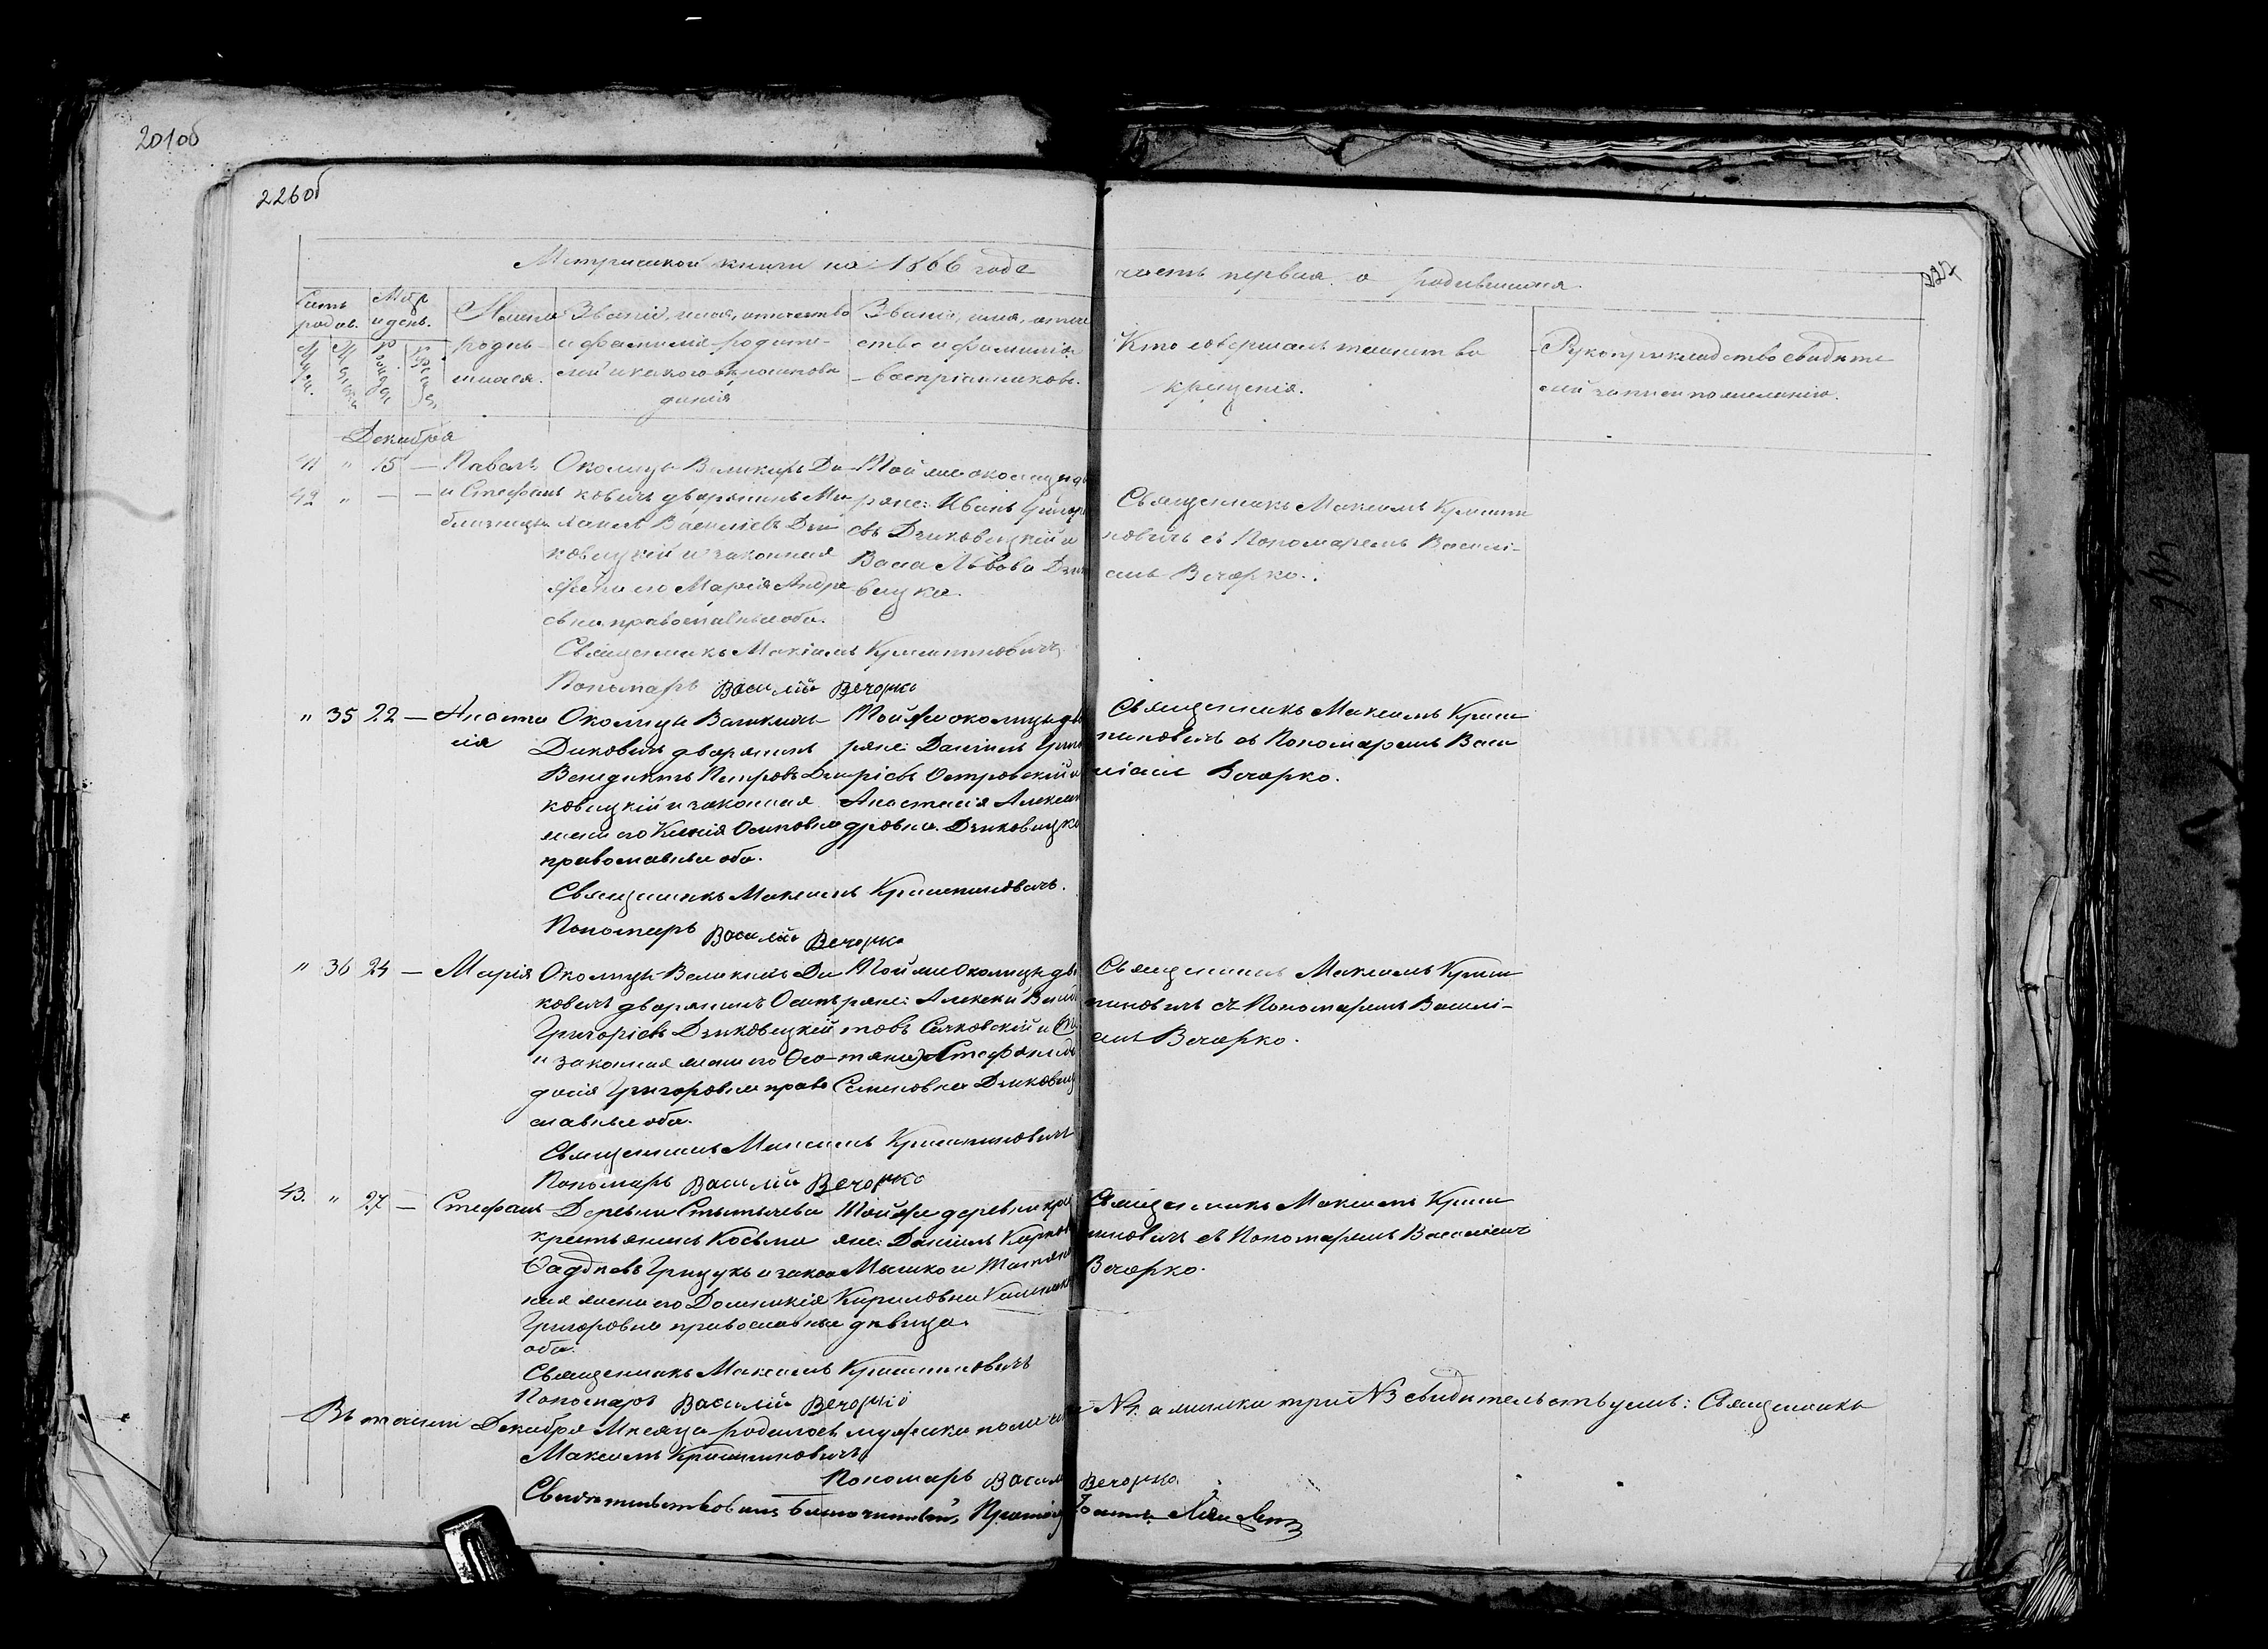 201об
226об
227
Метрической книги на 1866 года
часть первая о родившихся.
Счетъ родив.
Мѣся. и день.
Имена родив-
шихся.
Званіе, имя, отчество
и фамилія родите-
лей и какого вѣроисповѣ
данія
Званіе, имя, отче
ство и фамилія
воспріемниковъ.
Кто совершалъ таинство
крещенія.
Рукоприкладство свидѣте
лей записи по желанію.
Декабря
41 " 15 — Павелъ
42 " — — и Стефанъ
близнецы
Околицы Великихъ Ди-
ковичъ дворянинъ Ми
хаилъ Васильевъ Дзи
ковицкій и законная
жена его Марія Андре
евна православные оба.
Священникъ Максимъ Криштиновичъ
Пономарь Василій Вечорко
Той же околицы дво
ряне: Иванъ Григорь
евъ Дзиковицкій и
Васса Львова Дзико
вицка.
Священникъ Максимъ Кришти
новичъ съ Пономаремъ Василі-
емъ Вечорко.
" 35 22 — Анаста
сія
Околицы Великихъ
Диковичъ дворянинъ
Венедиктъ Петровъ Дзи
ковицкій и законная
жена его Ксенія Осиповна
православные оба.
Священникъ Максимъ Криштиновичъ.
Пономарь Василій Вечорко
Той же околицы дво
ряне: Даніилъ Григо
ріевъ Островскій и
Анастасія Алексан
дровна Дзиковицка
Священникъ Максимъ Криш
тиновичъ съ Пономаремъ Васи
ліемъ Вечорко.
" 36 24 — Марія
Околицы Великихъ Ди
ковичъ дворянинъ Осипъ
Григоріевъ Дзиковицкій
и законная жена его Ѳео-
досія Григоровна право
славные оба.
Священникъ Максимъ Криштиновичъ
Пономарь Василій Вечорко
Той же Околицы дво
ряне: Алексѣй
товъ Сачковскій и
Стефанида
Семеновна Дзиковиц
Священникъ Максимъ Криш
тиновичъ съ Пономаремъ Василі-
емъ Вечорко.
43. " 27 — Стефанъ
Деревни Стытычева
крестьянинъ Косьма
Ѳаддѣевъ Грицукъ и закон
ная жена его Домникія
Григоровна православные
оба.
Священникъ Максимъ Криштиновичъ
Пономарь Василій Вечорко
Той же деревни крест
яне: Даніилъ Карпов
Мышко и Татіяна
Кириловна
дѣвица.
Священникъ Максимъ Криш
тиновичъ съ Пономаремъ Василіемъ
Вечорко.
Въ теченіи Декабря Мѣсяца родилось мужеска пола № 4. а женска три №3 свидѣтельствуемъ: Священникъ
Максимъ Криштиновичъ
Пономарь Василій Вечорко
Свидѣтельствовалъ благочинный, Протоіер Іоаннъ